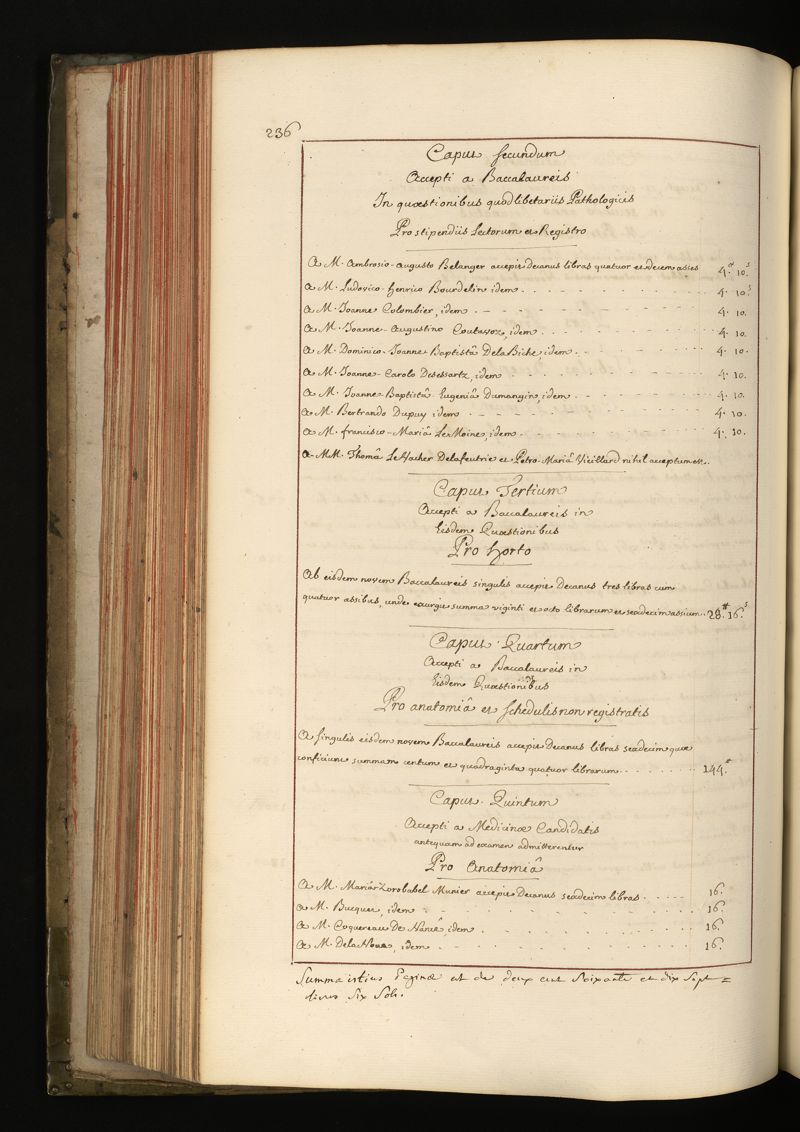 236
Caput secundum
Accepti a Baccalaureis
In quæstionibus quodlibetariis Pathologicis
Pro stipendiis Lectorum et Registro
A M. Ambrosio-Augusto Belanger accepit Decanus libras quatuor et decem asses 4.# 10.s
A M. Ludovico-henrico Bourdelin idem 4. 10.s
A M. Joanne Colombier, idem 4. 10.
A M. Joanne-Augustino Coutavoz, idem 4. 10.
A M. Dominico-Joanne Baptistâ DelaBiche, idem 4. 10.
A M. Joanne-Carolo Desessartz, idem 4. 10.
A M. Joanne-Baptistâ-Eugeniâ Dumangin, idem 4. 10.
A M. Bertrando Dupuy idem 4. 10.
A M. francisco-Mariâ LeMoine, idem 4. 10.
A MM. Thomâ LeVacher Delafeutrie et Petro-Mariâ Vieillard nihil acceptum est.
Caput Tertium
Accepti a Baccalaureis in
Eisdem Quæstionibus
Pro horto
Ab eisdem novem Baccalaureis singulis accepit Decanus tres libras cum
quatuor assibus, unde exurgit summa viginti et octo librarum et sexdecim assium. 28.# 16.s
Caput Quartum
Accepti a Baccalaureis in
Eisdem Quæstionibus
Pro anatomiâ et schedulis non registratis
A singulis eisdem novem Baccalaureis accepit Decanus libras sexdecim quæ
conficiunt summam centum et quadraginta quatuor librarum 144.#
Caput Quintum
Accepti a Medicinæ Candidatis
antequam ad examen admitterentur
Pro Anatomiâ
A M. Mariâ-Zorobabel Munier accepit Decanus sexdecim libras 16.
A M. Bucquet, idem 16.
A M. Coquereau De idem 16.
A M. DelaNoue, idem 16.
Summa istius Paginæ est de deux cent soixante et dix sept=
livres six sols.